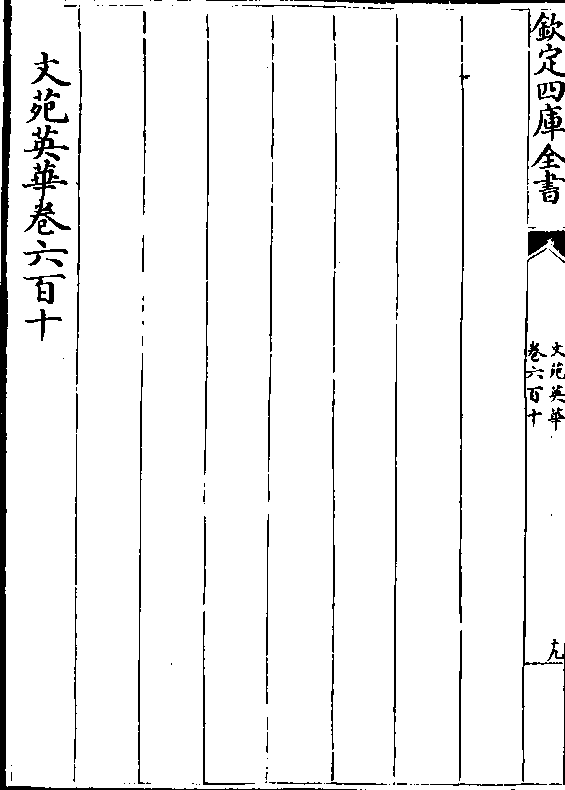 欽定四庫全書
文苑英華
卷六百十
十九
文苑英華卷六百十